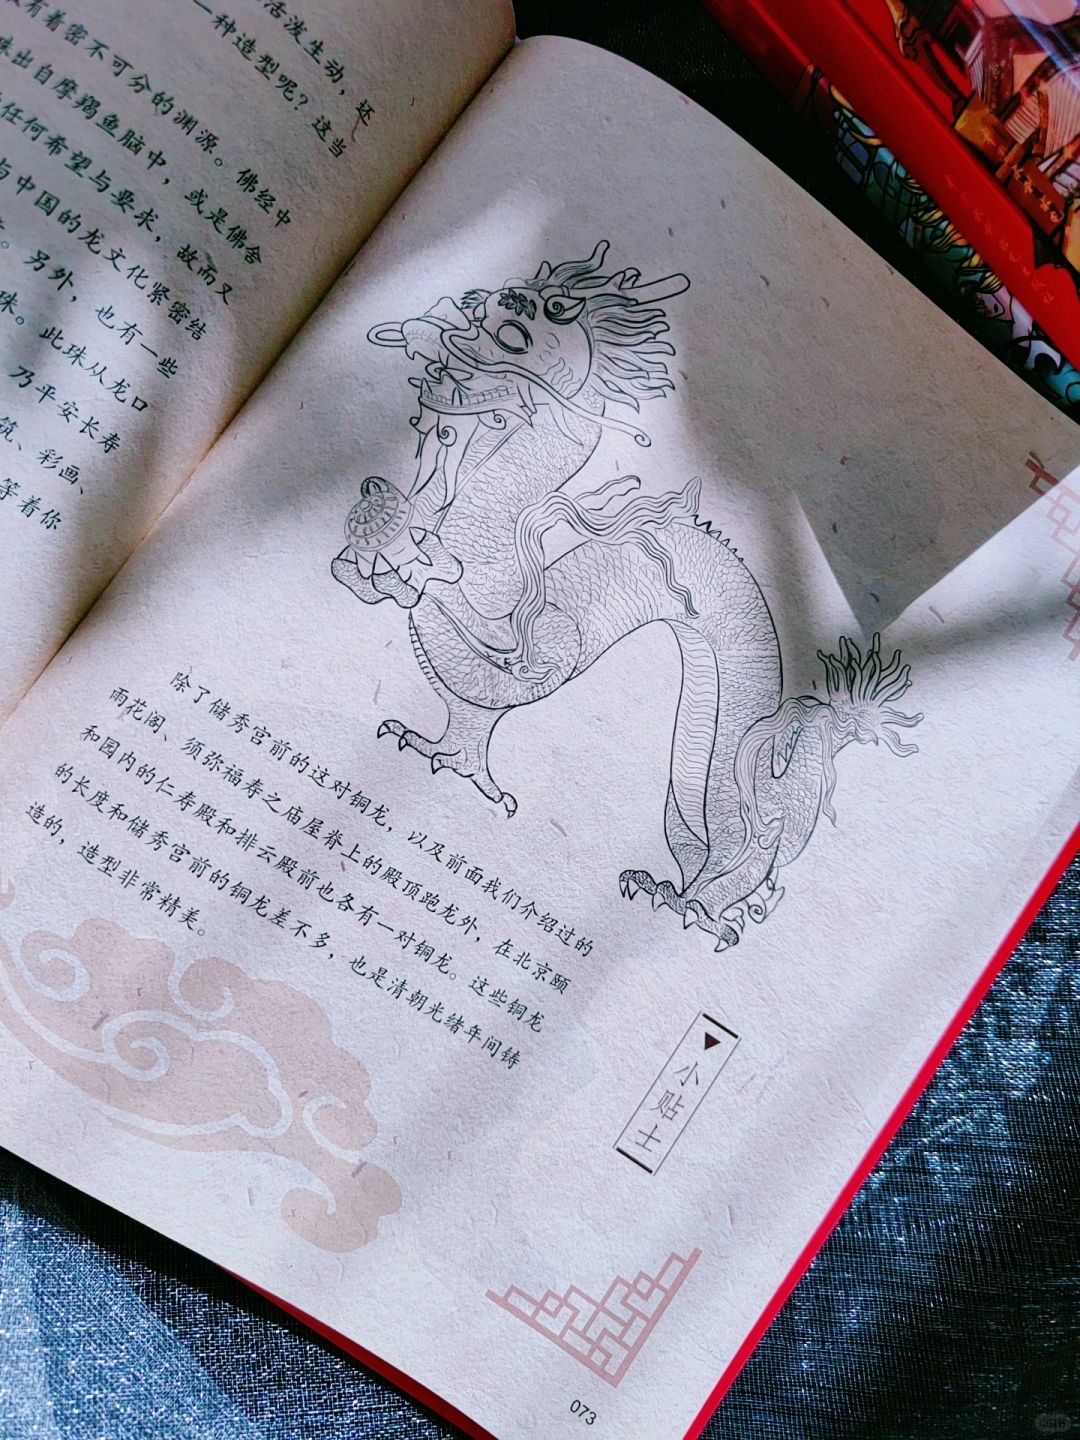 活泼生动，还
一种造型呢？这当
有着密不可分的渊源。佛经中
珠出自摩羯鱼脑中，或是佛舍
任何希望与要求，故而又
与中国的龙文化紧密结
。另外，也有一些
珠。此珠从龙口
乃平安长寿
筑、彩画、
等着你
除了储秀宫前的这对铜龙，以及前面我们介绍过的
雨花阁、须弥福寿之庙屋脊上的殿顶跑龙外，在北京颐
和园内的仁寿殿和排云殿前也各有一对铜龙。这些铜龙
的长度和储秀宫前的铜龙差不多，也是清朝光绪年间铸
造的，造型非常精美。
小贴士
073